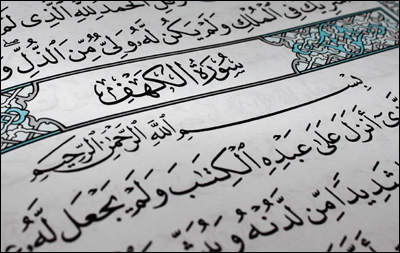 الْحَمْدُ لِلَّهِ الَّذِي لَمْ
شَرِيكٌ فِي الْمُلْكِ وَلَمْ يَكُن لَّهُ وَلِيٌّ مِّنَ الذُّلِّ
سُورَةُ الْكَهْفِ
بِسْمِ اللَّهِ الرَّحْمَٰنِ الرَّحِيمِ
أَنزَلَ عَلَىٰ عَبْدِهِ الْكِتَٰبَ وَلَمْ يَجْعَل لَّهُ
شَدِيدًا مِّن لَّدُنْهُ